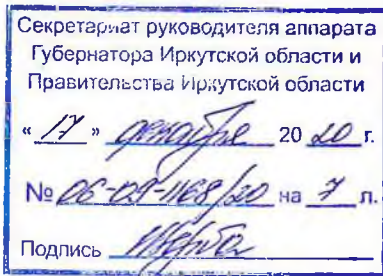 Секретариат руководителя аппарата
Губернатора Иркутской области и
Правительства Иркутской области
« 17 » декабря 20 20 г.
№ 06-09-1168/20 на 7 л.
Подпись